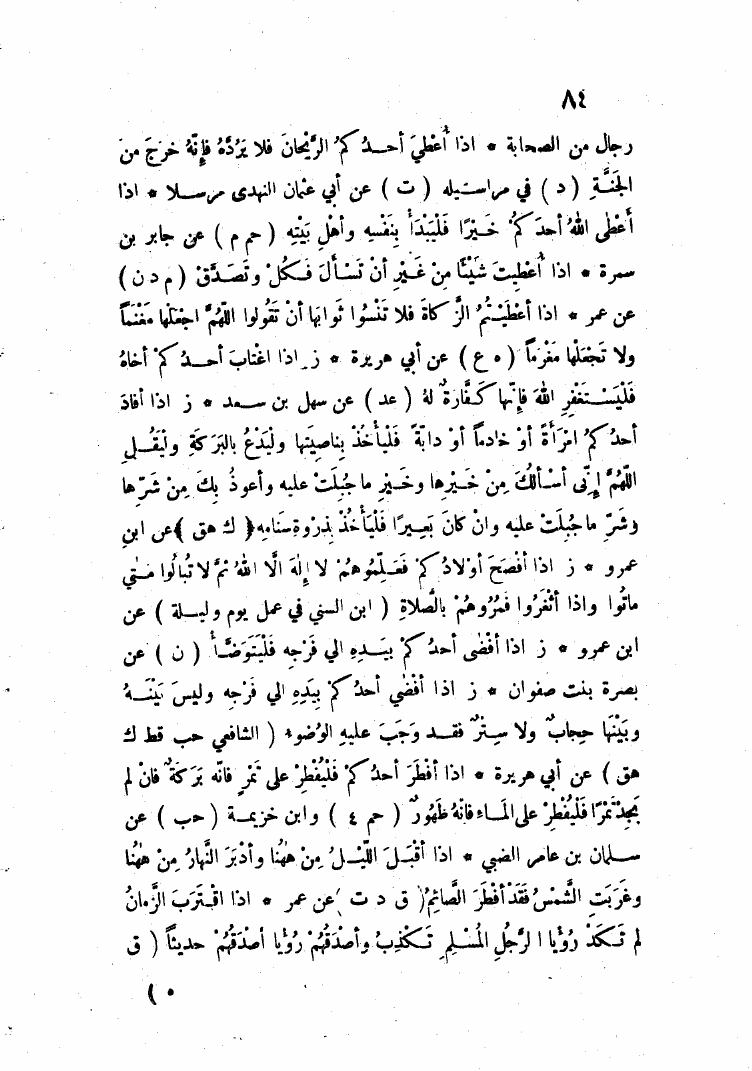 ٨٤
رجال من الصحابة * اذا أُعْطيَ أحدُكمُ الرَّيْحانَ فلا يَرُدَّهُ فإِنَّهُ خرَجَ منَ
الجَنَّةِ ( د ) في مراسيله ( ت ) عن أبي عثمان النهدى مرسلا * اذا
أعْطَى اللهُ أحدَكمْ خَيْرًا فَلْيَبْدَأْ بِنَفْسِهِ وأهْلِ بَيْتِهِ ( حم م ) عن جابر بن
سمرة * اذا أُعطِيتَ شَيْئًا مِنْ غَيْرِ أنْ تَسْألَ فَكُلْ وتَصَدَّقْ ( م د ن )
عن عمر * اذا أعْطَيْتُمُ الزَّكاةَ فلا تَنْسُوا ثَوابَها أنْ تَقُولوا اللّهُمَّ اجعَلْها مَغْنَماً
ولا تَجْعَلْها مَغْرَماً ( ه ع ) عن أبي هريرة * ز اذا اغْتابَ أحدُكمْ أخاهُ
فَلْيَسْتَغفِرِ اللهَ فَإِنَّها كَفَّارةٌ لهُ ( عد ) عن سهل بن سعد * ز اذا أفادَ
أحدُكمُ امْرَأةً أوْ خادماً أوْ دابَّةً فَلْيَأْخُذْ بِناصِيَتِها وليَدْعُ بالبَرَكَةِ وليَقُلِ
اللّهُمَّ إِنِّى أسْألُكَ مِنْ خَيْرِها وخَيْرِ ما جُبِلَتْ عليه وأعوذُ بِكَ مِنْ شَرِّها
وشَرِّ ما جُبِلَتْ عليه وانْ كانَ بَعِيرًا فَلْيَأْخُذْ بِذِرْوةِ سَنامِهِ ( ك هق ) عن ابنِ
عمرو * ز اذا أفْصَحَ أوْلادُكمْ فَعَلِّمُوهمْ لا إِلهَ الَّا اللهُ ثمَّ لا تُبالُوا مَتى
ماتُوا واذا أثْغَرُوا فَمُرُوهُمْ بالصَّلاةِ ( ابن السني في عمل يوم وليلة ) عن
ابن عمرو * ز اذا أفْضَى أحدُكمْ بيَدِهِ الي فَرْجِه فَلْيَتَوَضَّأْ ( ن ) عن
بصرة بنت صفوان * ز اذا أفْضَي أحدُكمْ بِيَدِهِ الي فَرْجِه وليسَ بَيْنَهُ
وبَيْنَها حِجابٌ ولا سِتْرٌ فقد وَجَبَ عليهِ الوُضوء ( الشافعي حب قط ك
هق ) عن أبي هريرة * اذا أفْطَرَ أحدُكمْ فَلْيُفْطِرْ على تَمْرٍ فانَّه بَرَكَةٌ فانْ لم
يَجِدْ تَمْرًا فَلْيُفْطِرْ على الماءِ فانَّهُ طَهُورٌ ( حم ٤ ) وابن خزيمة ( حب ) عن
سلمان بن عامر الضبي * اذا أقْبَلَ اللَّيْلُ مِنْ هٰهُنا وأدْبَرَ النَّهارُ مِنْ هٰهُنا
وغَرَبَتِ الشَّمْسُ فَقَدْ أفطَرَ الصَّائِمُ ( ق د ت ) عن عمر * اذا اقْتَرَبَ الزَّمانُ
لم تَكَدْ رُؤْيا الرَّجُلِ المُسْلِمِ تَكْذِبُ وأصْدَقُهُمْ رُؤْيا أصْدَقُهُمْ حديثاً ( ق
ه )